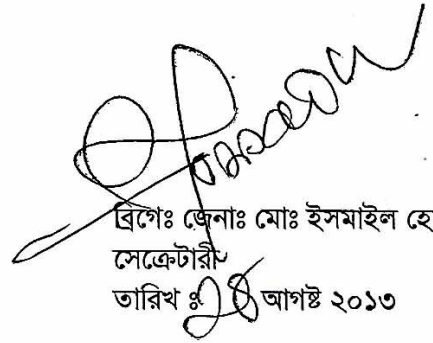 ব্রিগেঃ জেনাঃ মোঃ ইসমাইল হো
সেক্রেটারী
তারিখ ঃ ২৪ আগষ্ট ২০১৩